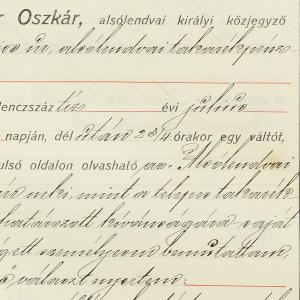 r Oszkár, alsólendvai királyi közjegyző
úr, alsólendvai takarékpénz
lenczszáz tíz évi július
napján, dél után 2 3/4 órakor egy váltót,
ulsó oldalon olvasható az Alsólendvai
neki, mint a telepes takarék
határozott kívánságára saját
személyesen bemutattam,
választ nyertem: